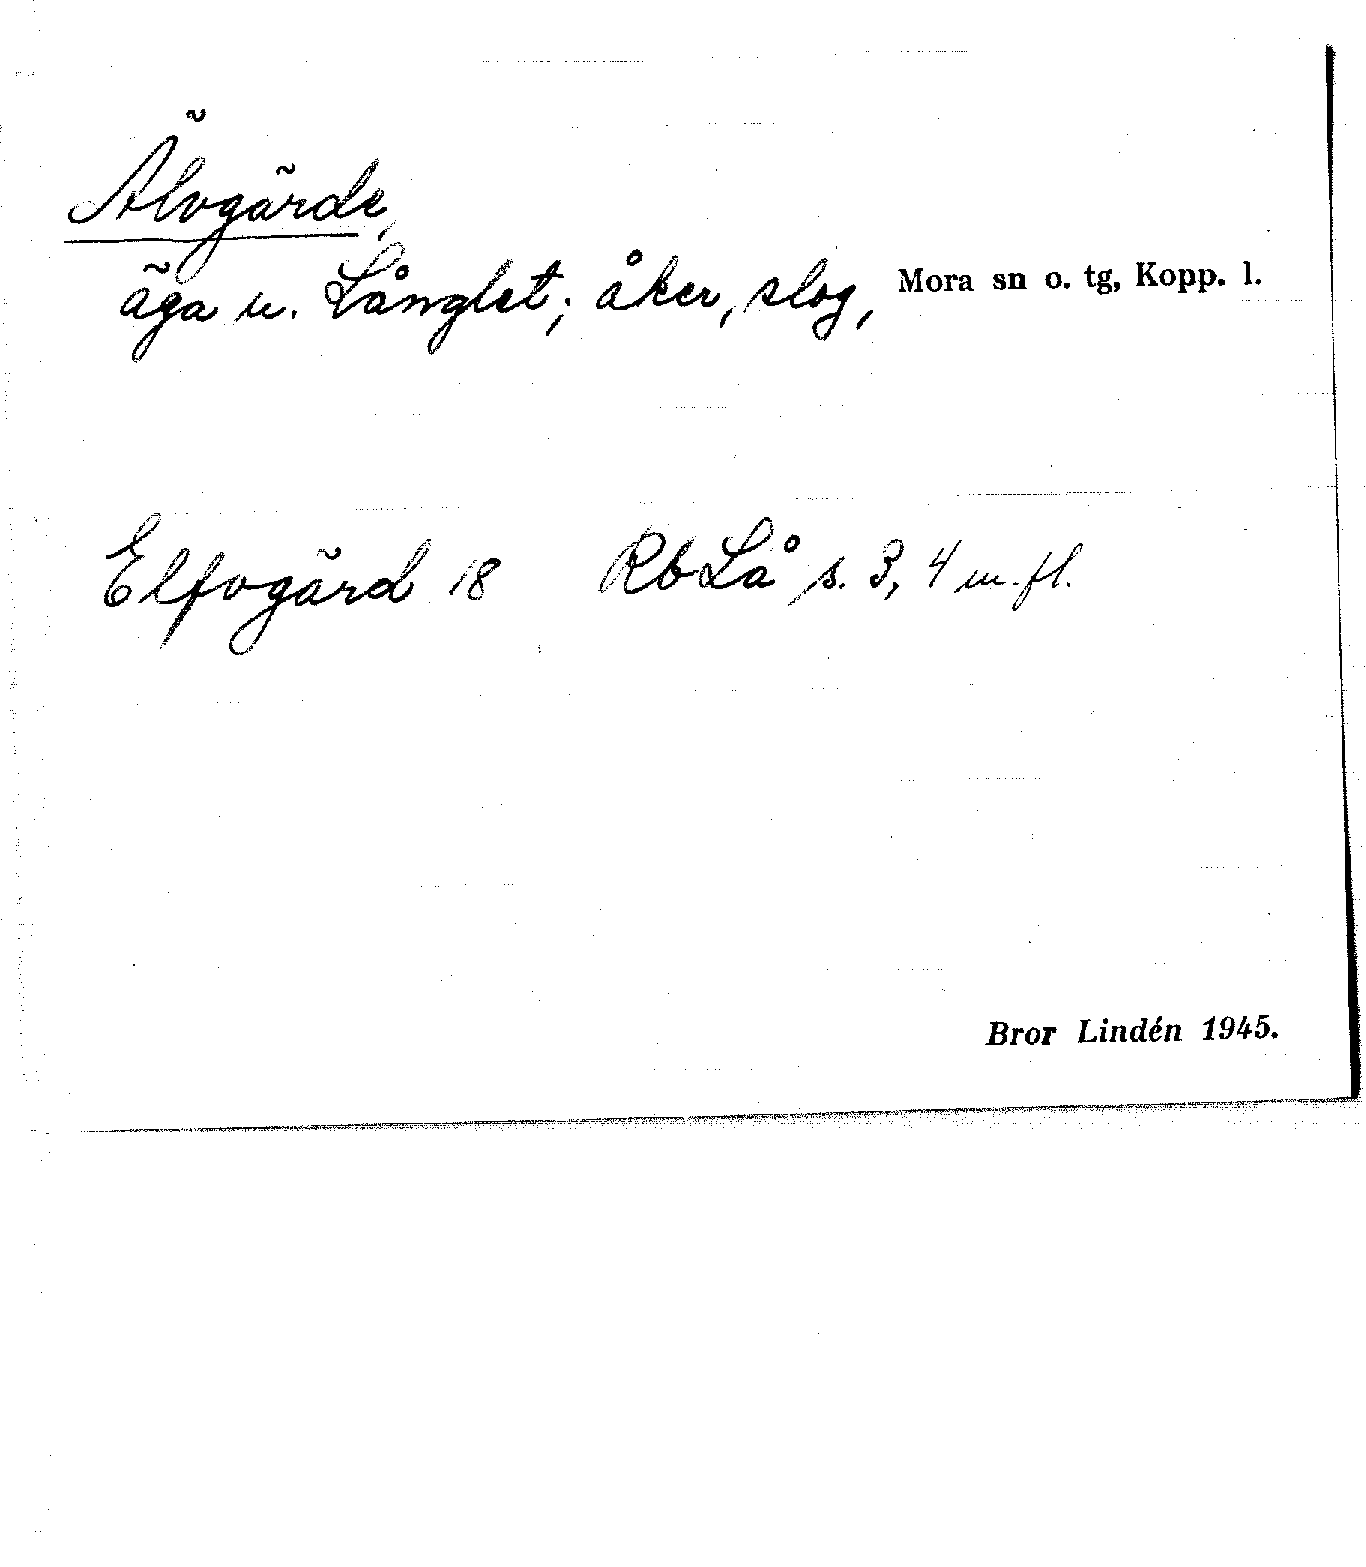 Älvgärde,
äga u. Långlet; åker, slog, Mora sn o. tg, Kopp. l.
Elfvgärd 18 Rb Lå s. 3, 4 m. fl.
Bror Lindén 1945.